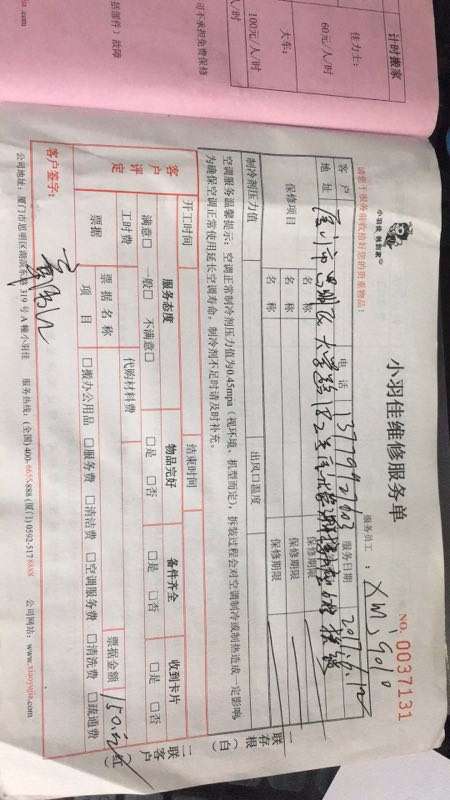 计时搬家
佳力士：
60元/人/时
大车：
100元/人/时
人/时
司不承担免费保修
括部件）故障
.com
小羽佳维修服务单
NO. 0037131
小羽佳 搬到家
请您于服务前收拾好您的贵重物品！
服务员工：
客户
电话
13779927603
服务日期
地址
厦门市思明区大学路
保修项目
名称
保修期限
名称
保修期限
名称
保修期限
制冷剂压力值
出风口温度
空调服务温馨提示：空调正常制冷剂压力值为0.45mpa（视环境、机型而定），拆装过程会对空调制冷或制热造成一定影响
为确保空调正常使用延长空调寿命，制冷剂不足时请及时补充。
开工时间
结束时间
客户评定
服务态度
物品完好
备件齐全
收到卡片
满意□ 一般□ 不满意□
□是 □否
□是 □否
□是 □否
工时费
代购材料费
票据
票据名称
票据金额
150元
项目
□搬办公用品 □服务费 □清洁费 □空调服务费 □清洗费 □疏通费
客户签字：
一联存根（白）
二联客户（红）
公司地址：厦门市思明区湖滨东路319号A幢小羽佳
服务热线：(全国)400-6655888 (厦门)0592-5178888
公司网站：www.xiaoyujia.com